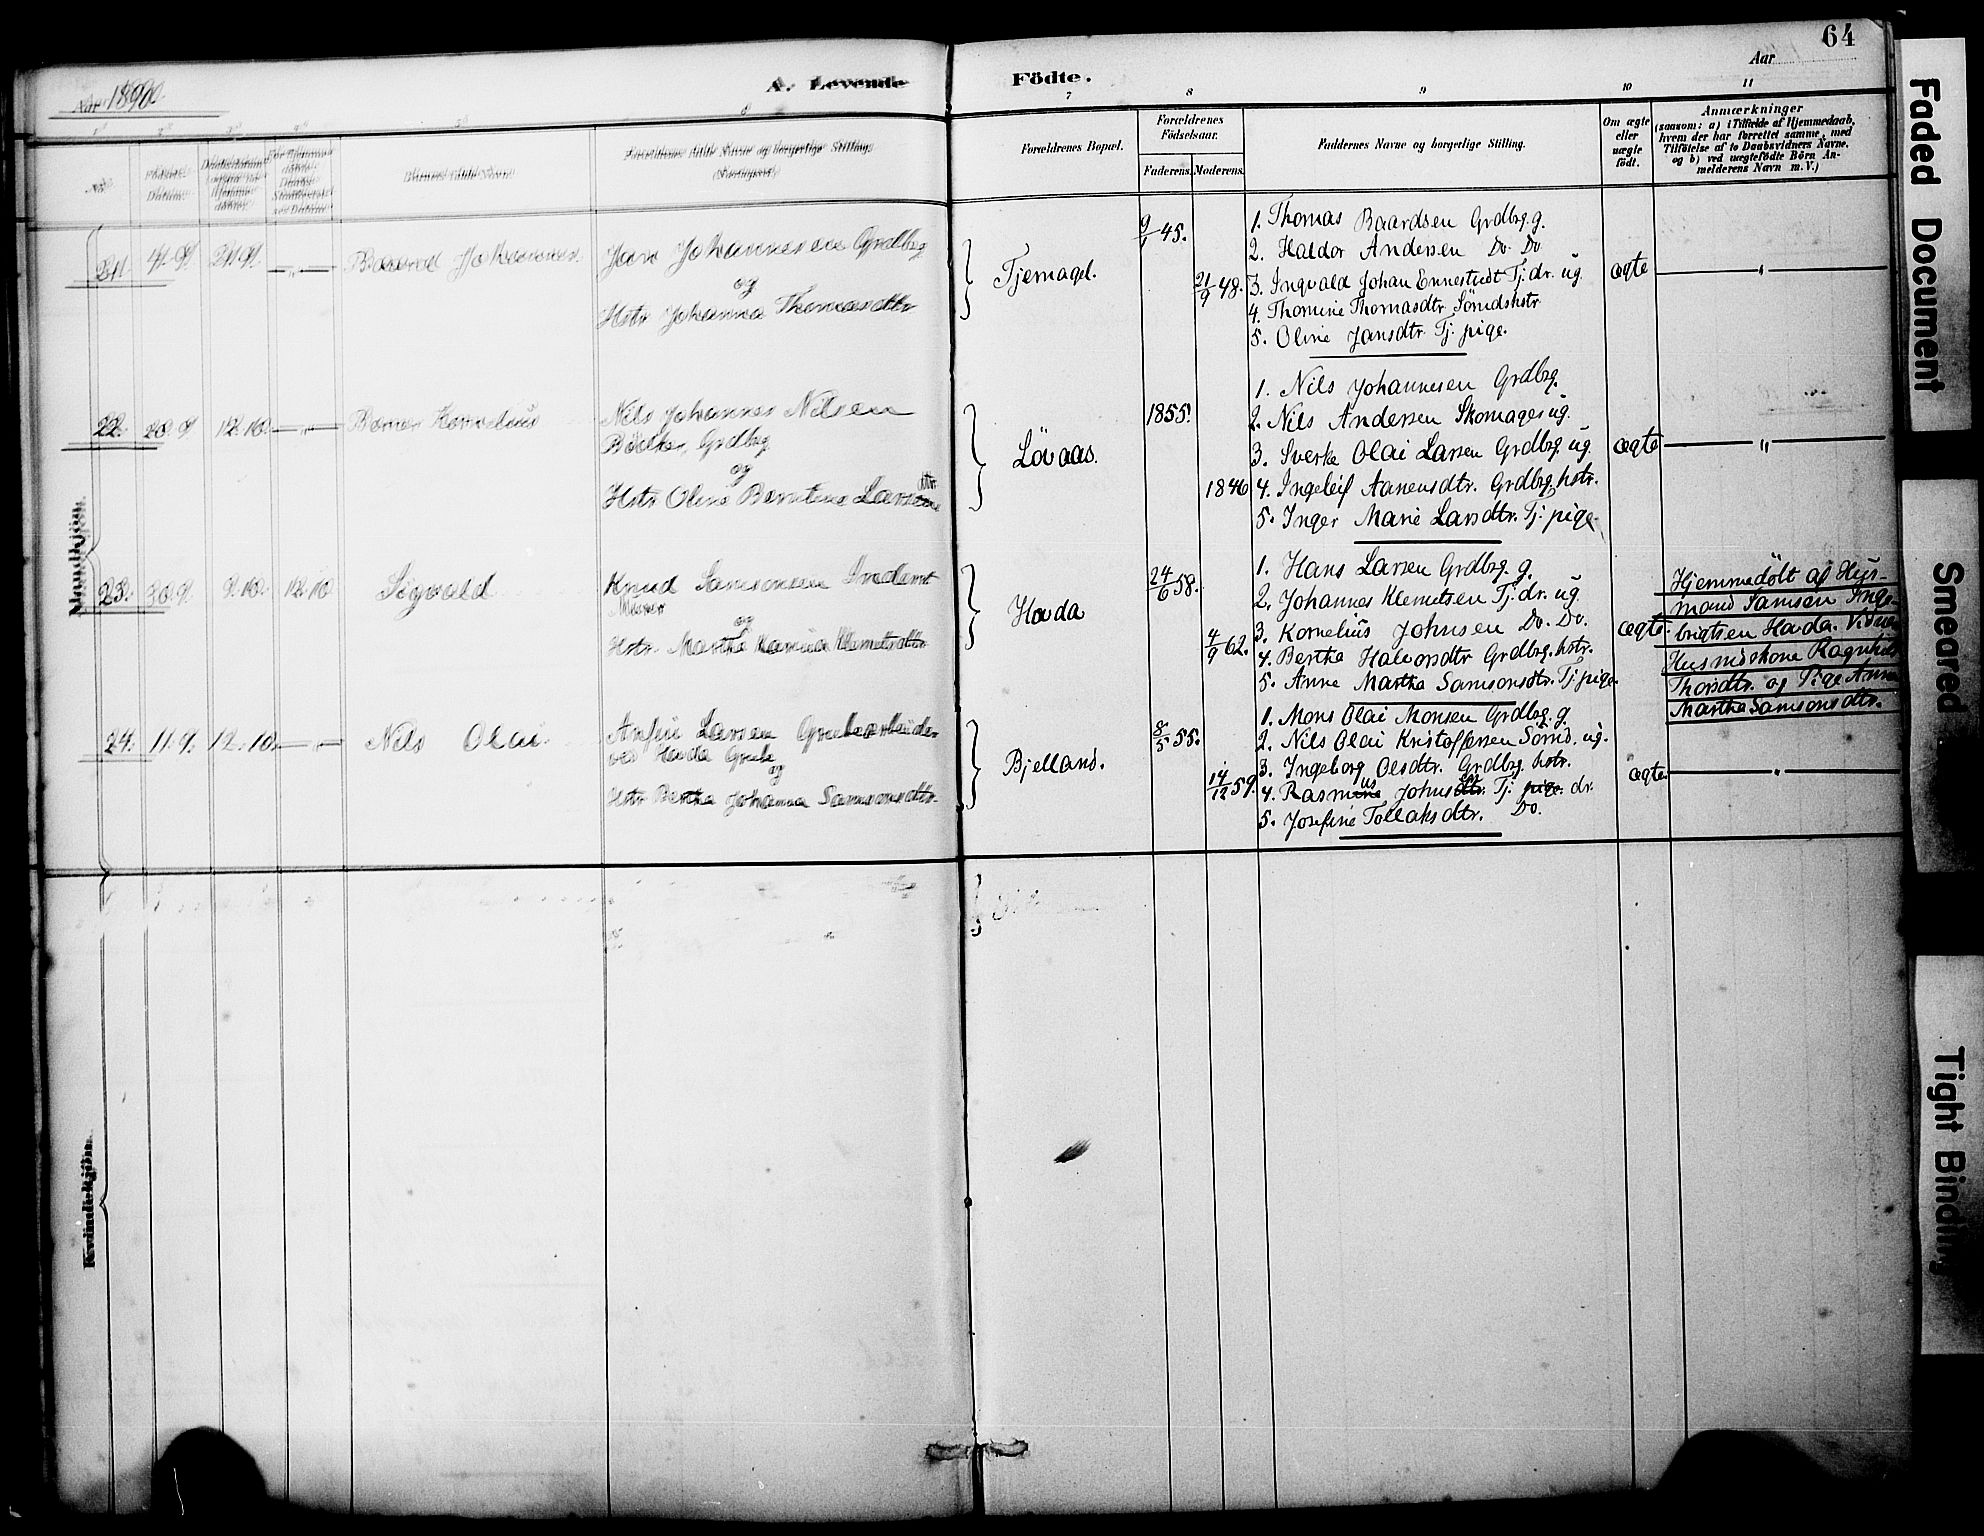 64
Aar 1890.
A. Levende Födte.
Aar
6 7 8 9 10 11
No.
Födsels-Datum.
Barnets fulde Navn.
Forældrenes fulde Navne og borgerlige Stilling.
Forældrenes Bopæl.
Forældrenes Födselsaar.
Faderens. Moderens.
Faddernes Navne og borgerlige Stilling.
Om ægte eller uægte födt.
Anmærkninger
(saasom: a) i Tilfælde af Hjemmedaab,
hvem der har forrettet samme, med
Tilföielse af to Daabsvidners Navne,
og b) ved uægtefödte Börn An-
melderens Navn m. V.)
Mandkjön.
21. 4.9. 21.9. — „ — Baard Johannes.
Jan Johannesen Grdbrg
og
Hstr Johanna Thomasdttr
Tjernagel.
9/1 45.
21/9 48.
1. Thomas Baardsen Grdbrg. g.
2. Haldor Andersen Do. Do
3. Ingvald Johan Ennestvedt Tj. dr. ug
4. Thomine Thomasdtr Sömdshstr
5. Oline Jansdtr. Tj. pige.
ægte
— „ —
22. 28.9 12.10. — „ — Berner Kornelius
Nils Johannes Nilsen
Bödker, Grdbrg
og
Hstr Oline Berntine Larsdttr
Lövaas.
1855.
1846
1. Nils Johannesen Grdbrg.
2. Nils Andersen Skomager ug.
3. Sverke Olai Larsen Grdbrg. ug.
4. Ingeleif Aanensdtr. Grdbrg. hstr.
5. Inger Marie Larsdtr. Tj. pige.
ægte
— „ —
23. 30.9. 9.10. 12.10 Sigvald
Knud Samsonsen Inderst
Murer
og
Hstr. Martha Klemetsdttr
Hovda
24/6 58.
4/9 62.
1. Hans Larsen Grdbrg. g.
2. Johannes Klemetsen Tj. dr. ug.
3. Kornelius Johnsen Do. Do.
4. Berthe Halvorsdtr Grdbrg. hstr.
5. Anne Martha Samsonsdtr. Tj pige.
ægte.
Hjemmedöbt af Hus-
mand Samson Inge-
brigtsen Hovda. Vidner
Husmdskone Ragnhild
Thorsdtr. og Pige Anne
Martha Samsonsdtr.
24. 11.9. 12.10. — „ — Nils Olai.
Anfin Larsen Grubearbeider
ved Hovda Grube
og
Hstr Bertha Johanna Samsonsdttr.
Bjelland.
8/5 55.
14/12 59.
1. Mons Olai Monsen Grdbrg. g.
2. Nils Olai Kristoffersen Sömd. ug.
3. Ingeborg Olsdtr. Grdbrg. hstr.
4. Rasmus Johnsen Tj. pige. dr.
5. Josefine Tollaksdtr. Do.
ægte
— „ —
Kvindekjön.
Faded Document
Smeared
Tight Binding